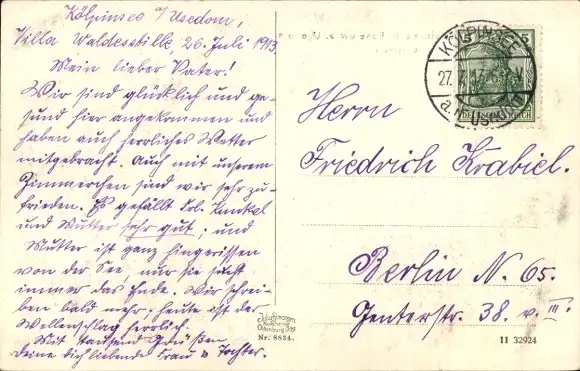 Kölpinsee a/Usedom,
Villa Waldesstille, 26. Juli 1913.
Mein lieber Vater!
Wir sind glücklich und ge-
sund hier angekommen und
haben auch herrliches Wetter
mitgebracht. Auch mit unserem
Zimmerchen sind wir sehr zu-
frieden. Es gefällt Frl.
und Mutter sehr gut; und
Mutter ist ganz hingerissen
von der See, nur sie sucht
immer das Ende. Wir schrei-
ben bald mehr; heute ist der
Wellenschlag herrlich.
Mit tausend Grüßen
Deine dich liebende Frau u Tochter.
KÖLPINSEE
27. 7. 13
a. Usedom
5
DEUTSCHES REICH
Herrn
Friedrich Krabiel.
Berlin N. 65.
Genterstr. 38. v. III.
Nr. 8834.
11 32924